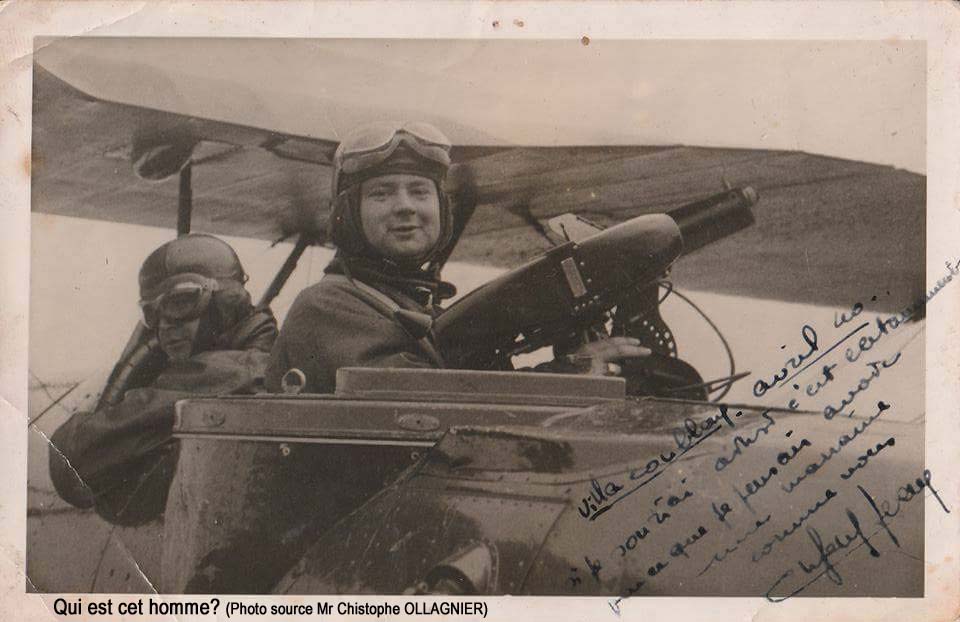 Villa coublay. avril 40
si je souriai ainsi c'est certainement
parce que je pensais avoir
une marraine
comme vous
Jean
Qui est cet homme? (Photo source Mr Chistophe OLLAGNIER)